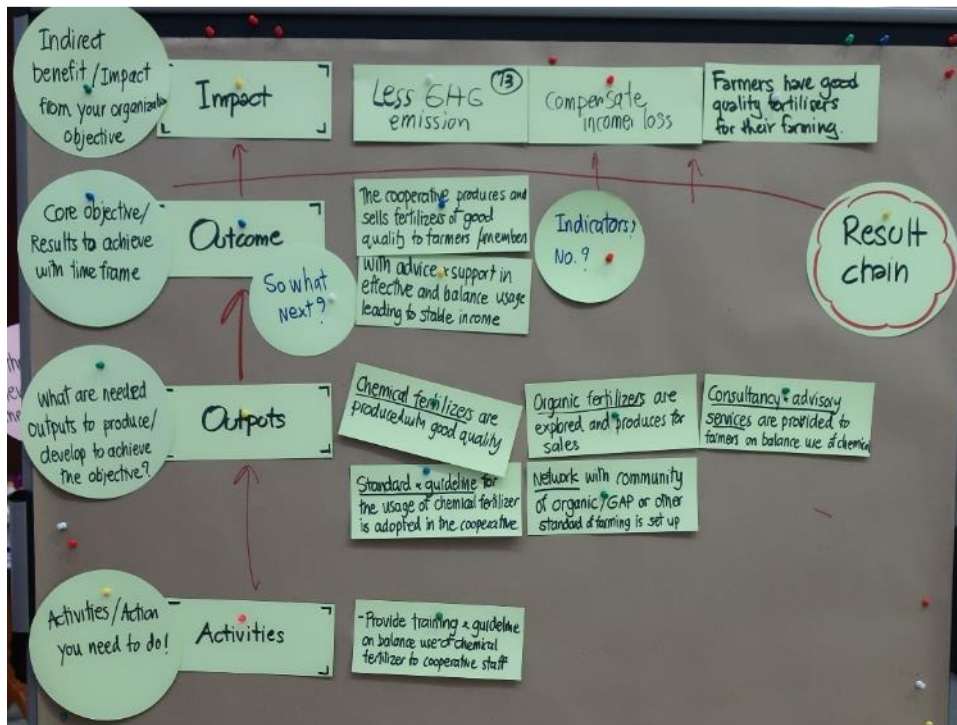 Indirect
benefit/Impact
from your organization
objective
Impact
Less GHG
emission
13
compensate
income loss
Farmers have good
quality fertilisers
for their farming.
Core objective/
Results to achieve
with time frame
Outcome
So what
Next?
The cooperative produces and
sells fertilizers of good
quality to farmers/members
with advice & support in
effective and balance usage
leading to stable income
Indicators?
No.?
Result
chain
What are needed
outputs to produce/
develop to achieve
the objective?
Outputs
Chemical fertilizers are
produced with good quality
Organic fertilizers are
explored and produces for
sales
Consultancy & advisory
services are provided to
farmers on balance use of chemical
Standard & guideline for
the usage of chemical fertilizer
is adopted in the cooperative
Network with community
of organic/GAP or other
standard of farming is set up
Activities/Action
you need to do!
Activities
- Provide training & guideline
on balance use of chemical
fertilizer to cooperative staff